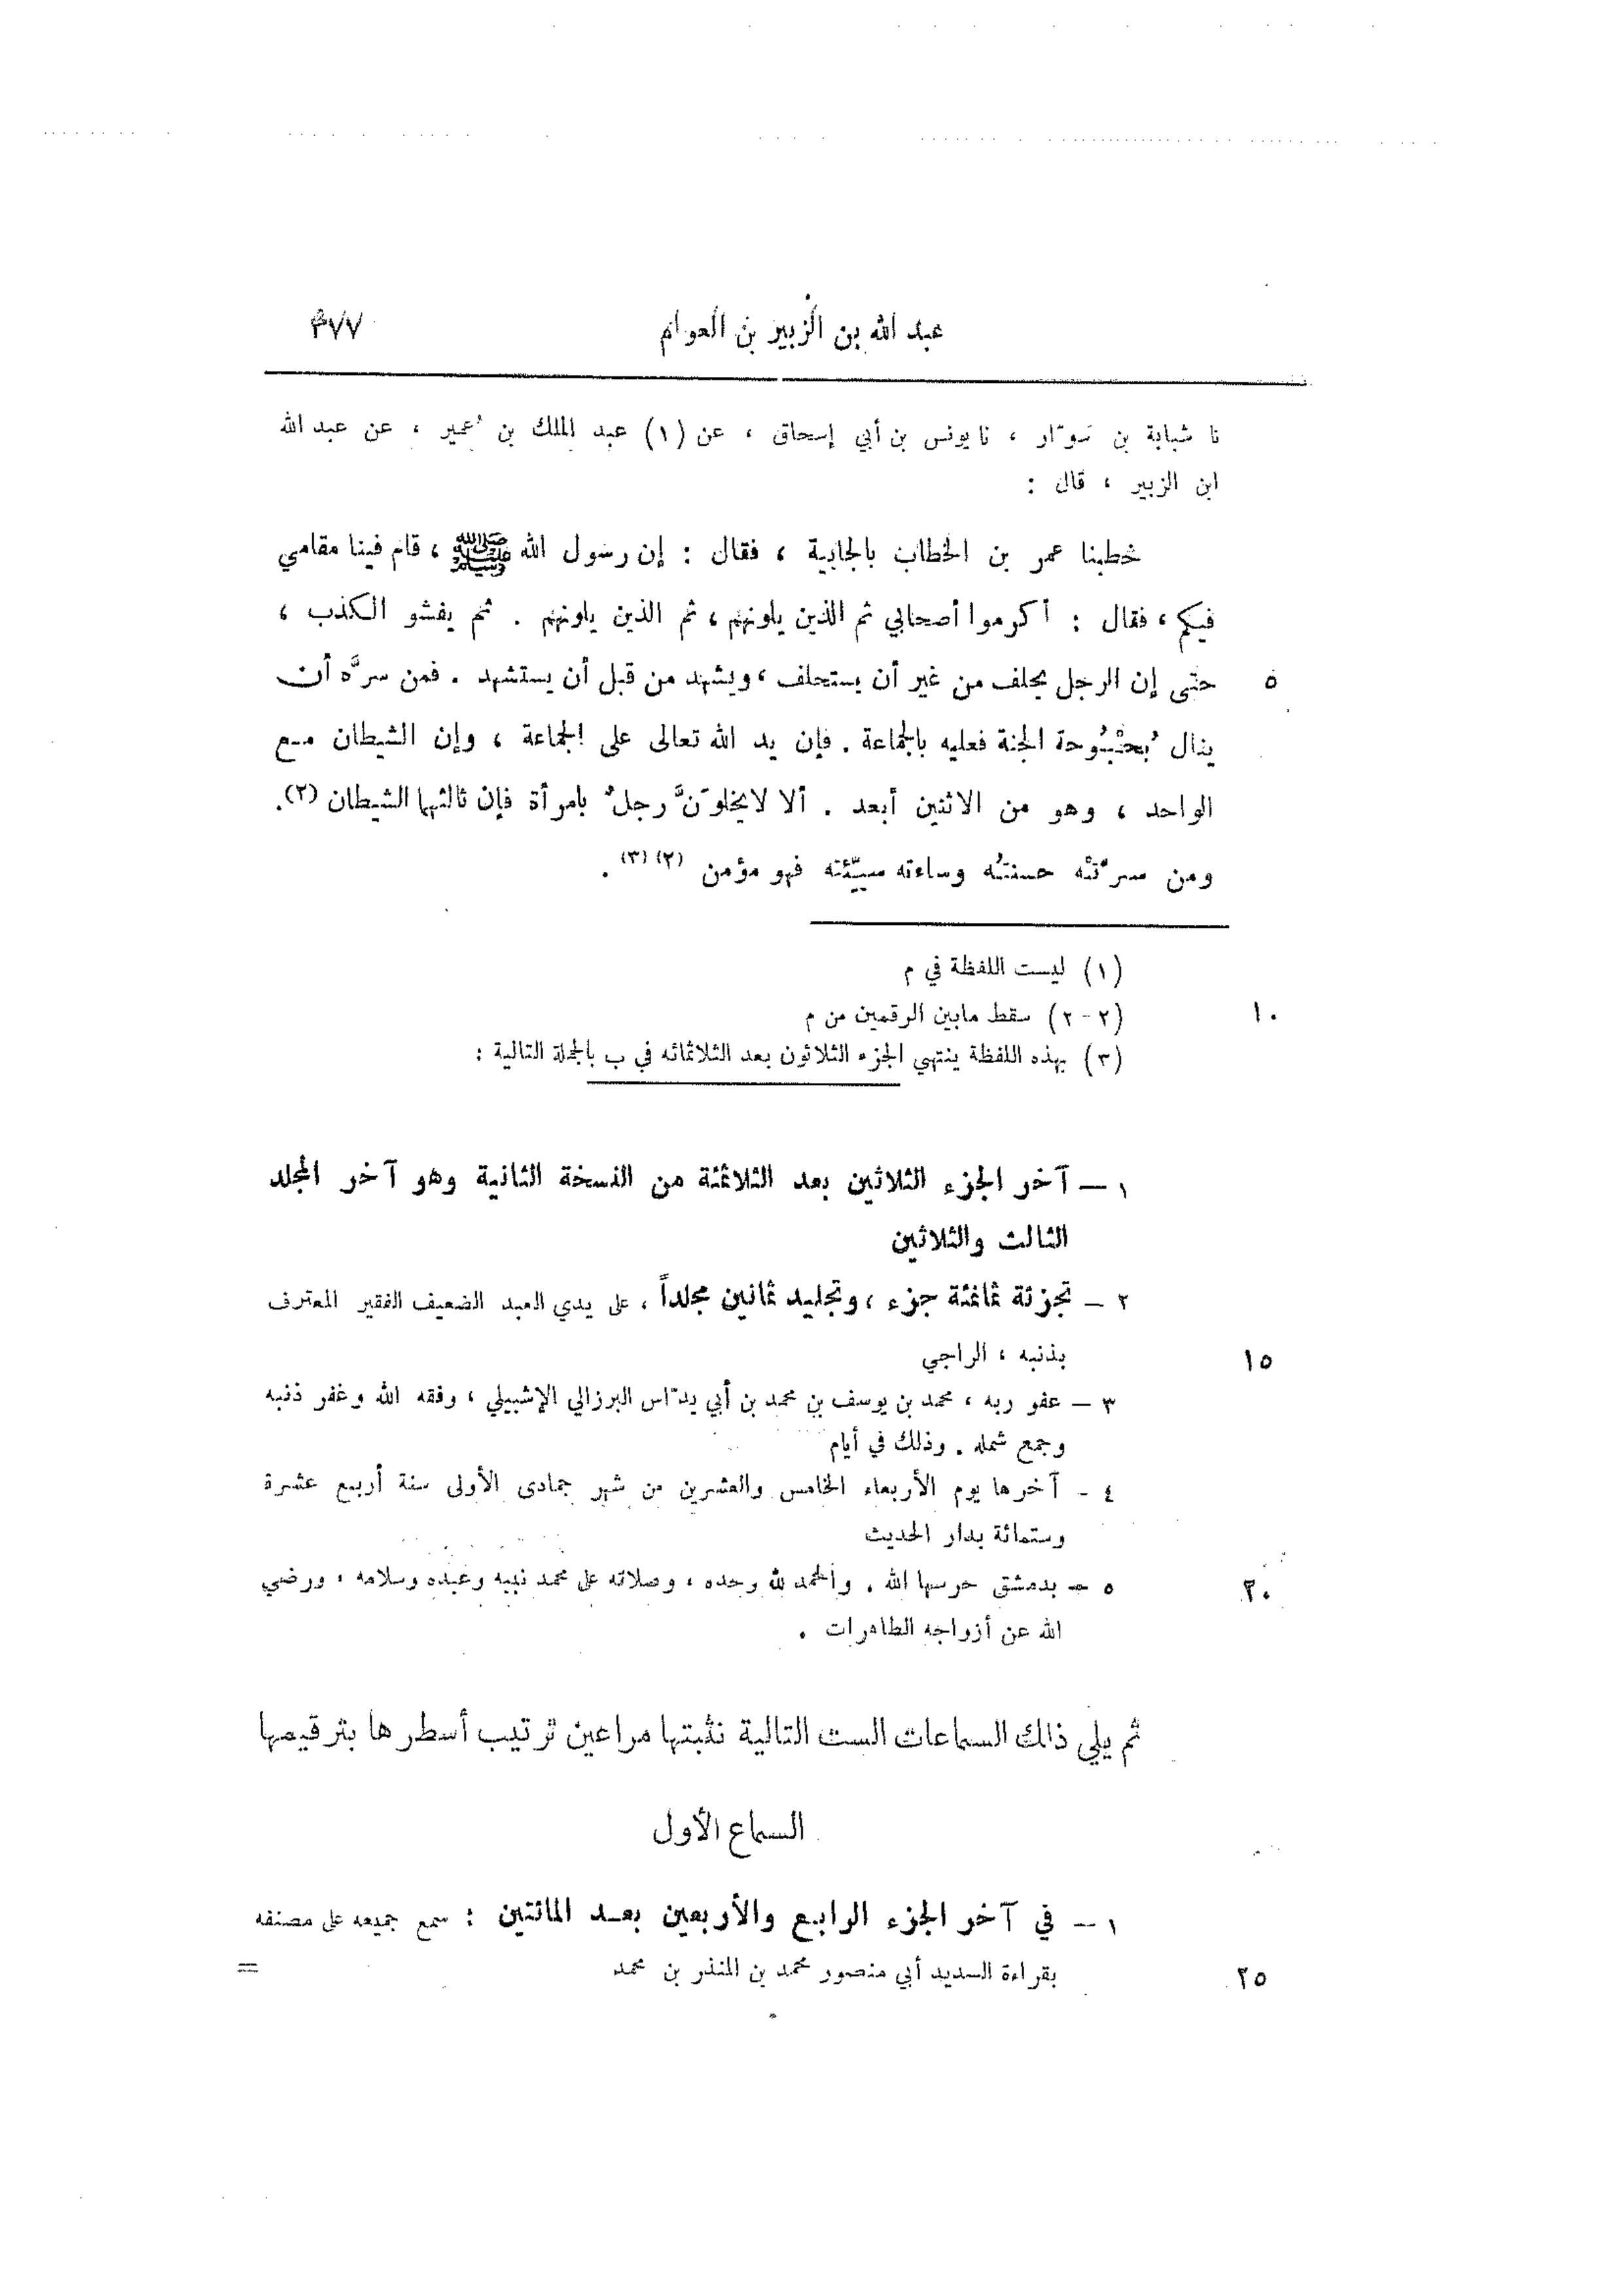 عبد الله بن الزبير بن العوام ٣٧٧
نا شبابة بن سَوّار ، نا يونس بن أبي إسحاق ، عن (١) عبد الملك بن عُمير ، عن عبد الله
ابن الزبير ، قال :
خطبنا عمر بن الخطاب بالجابية ، فقال : إن رسول الله ﷺ ، قام فينا مقامي
فيكم ، فقال : أكرموا أصحابي ثم الذين يلونهم ، ثم الذين يلونهم . ثم يفشو الكذب ،
حتى إن الرجل يحلف من غير أن يستحلف ، ويشهد من قبل أن يستشهد . فمن سرَّه أن ٥
ينال بُحْبُوحة الجنة فعليه بالجماعة . فإن يد الله تعالى على الجماعة ، وإن الشيطان مع
الواحد ، وهو من الاثنين أبعد . ألا لا يخلوَنَّ رجلٌ بامرأة فإن ثالثها الشيطان (٢).
ومن سرّتْه حسنتُه وساءته سيّئته فهو مؤمن (٢) (٣) .
(١) ليست اللفظة في م
(٢ - ٢) سقط مابين الرقمين من م ١٠
(٣) بهذه اللفظة ينتهي الجزء الثلاثون بعد الثلاثمائه في ب بالجملة التالية :
١ – آخر الجزء الثلاثين بعد الثلاثمئة من النسخة الثانية وهو آخر المجلد
الثالث والثلاثين
٢ – تجزئة ثمانمئة جزء ، وتجليد ثمانين مجلداً ، على يدي العبد الضعيف الفقير المعترف
بذنبه ، الراجي ١٥
٣ – عفو ربه ، محمد بن يوسف بن محمد بن أبي يدّاس البرزالي الإشبيلي ، وفقه الله وغفر ذنبه
وجمع شمله . وذلك في أيام
٤ - آخرها يوم الأربعاء الخامس والعشرين من شهر جمادى الأولى سنة أربع عشرة
وستمائة بدار الحديث
٥ – بدمشق حرسها الله . والحمد لله وحده ، وصلاته على محمد نبيه وعبده وسلامه ، ورضي ٢٠
الله عن أزواجه الطاهرات .
ثم يلي ذلك السماعات الست التالية نثبتها مراعين ترتيب أسطرها بترقيمها
السماع الأول
١ – في آخر الجزء الرابع والأربعين بعد المائتين : سمع جميعه على مصنفه
بقراءة السديد أبي منصور محمد بن المنذر بن محمد = ٢٥